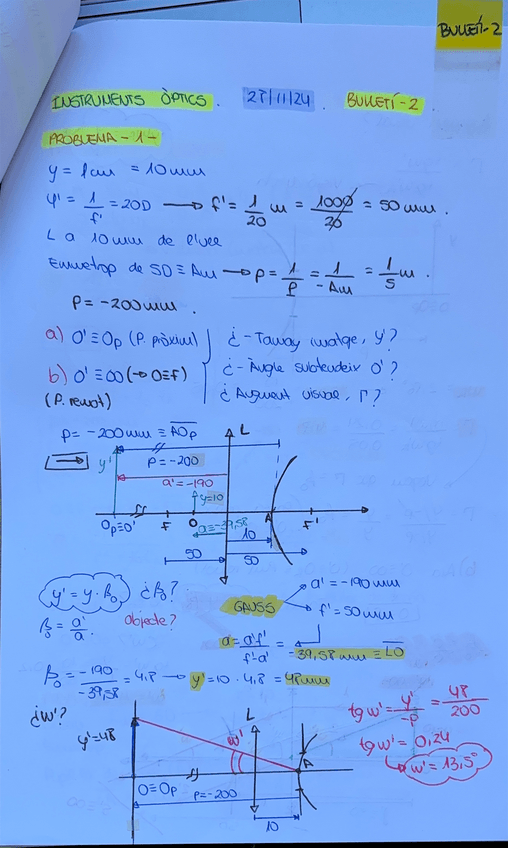 BULLETÍ-2
INSTRUMENTS ÒPTICS. 27/11/24. BULLETÍ-2
PROBLEMA-1-
y = 1cm = 10mm
φ' = 1/f' = 20D → f' = 1/20 m = 1000/20 = 50 mm.
L a 10mm de l'ull
Emmetrop de 5D ≡ Am → p = 1/P = 1/-Am = 1/5 m.
p = -200mm.
a) O' ≡ Op (P. pròxim)
b) O' ≡ ∞ (→ O≡F)
(P. remot)
¿- Tamany imatge, y'?
¿- Angle subtendeix O'?
¿ Augment visual, Γ?
p = -200mm ≡ AOp
L
y'
p = -200
a' = -190
y=10
a = -39,58
Op≡O' F O A F'
10
50 50
y' = y · βo ¿βo?
β = a'/a. Objecte?
GAUSS
a' = -190mm
f' = 50mm
a = a'f'/f'-a' = -39,58mm ≡ LO
βo = -190/-39,58 = 4,8 → y' = 10 · 4,8 = 48mm
¿w'?
y'=48
L
w'
A
O≡Op
p=-200
10
tg w' = y'/-p = 48/200
tg w' = 0,24
w' = 13,5°